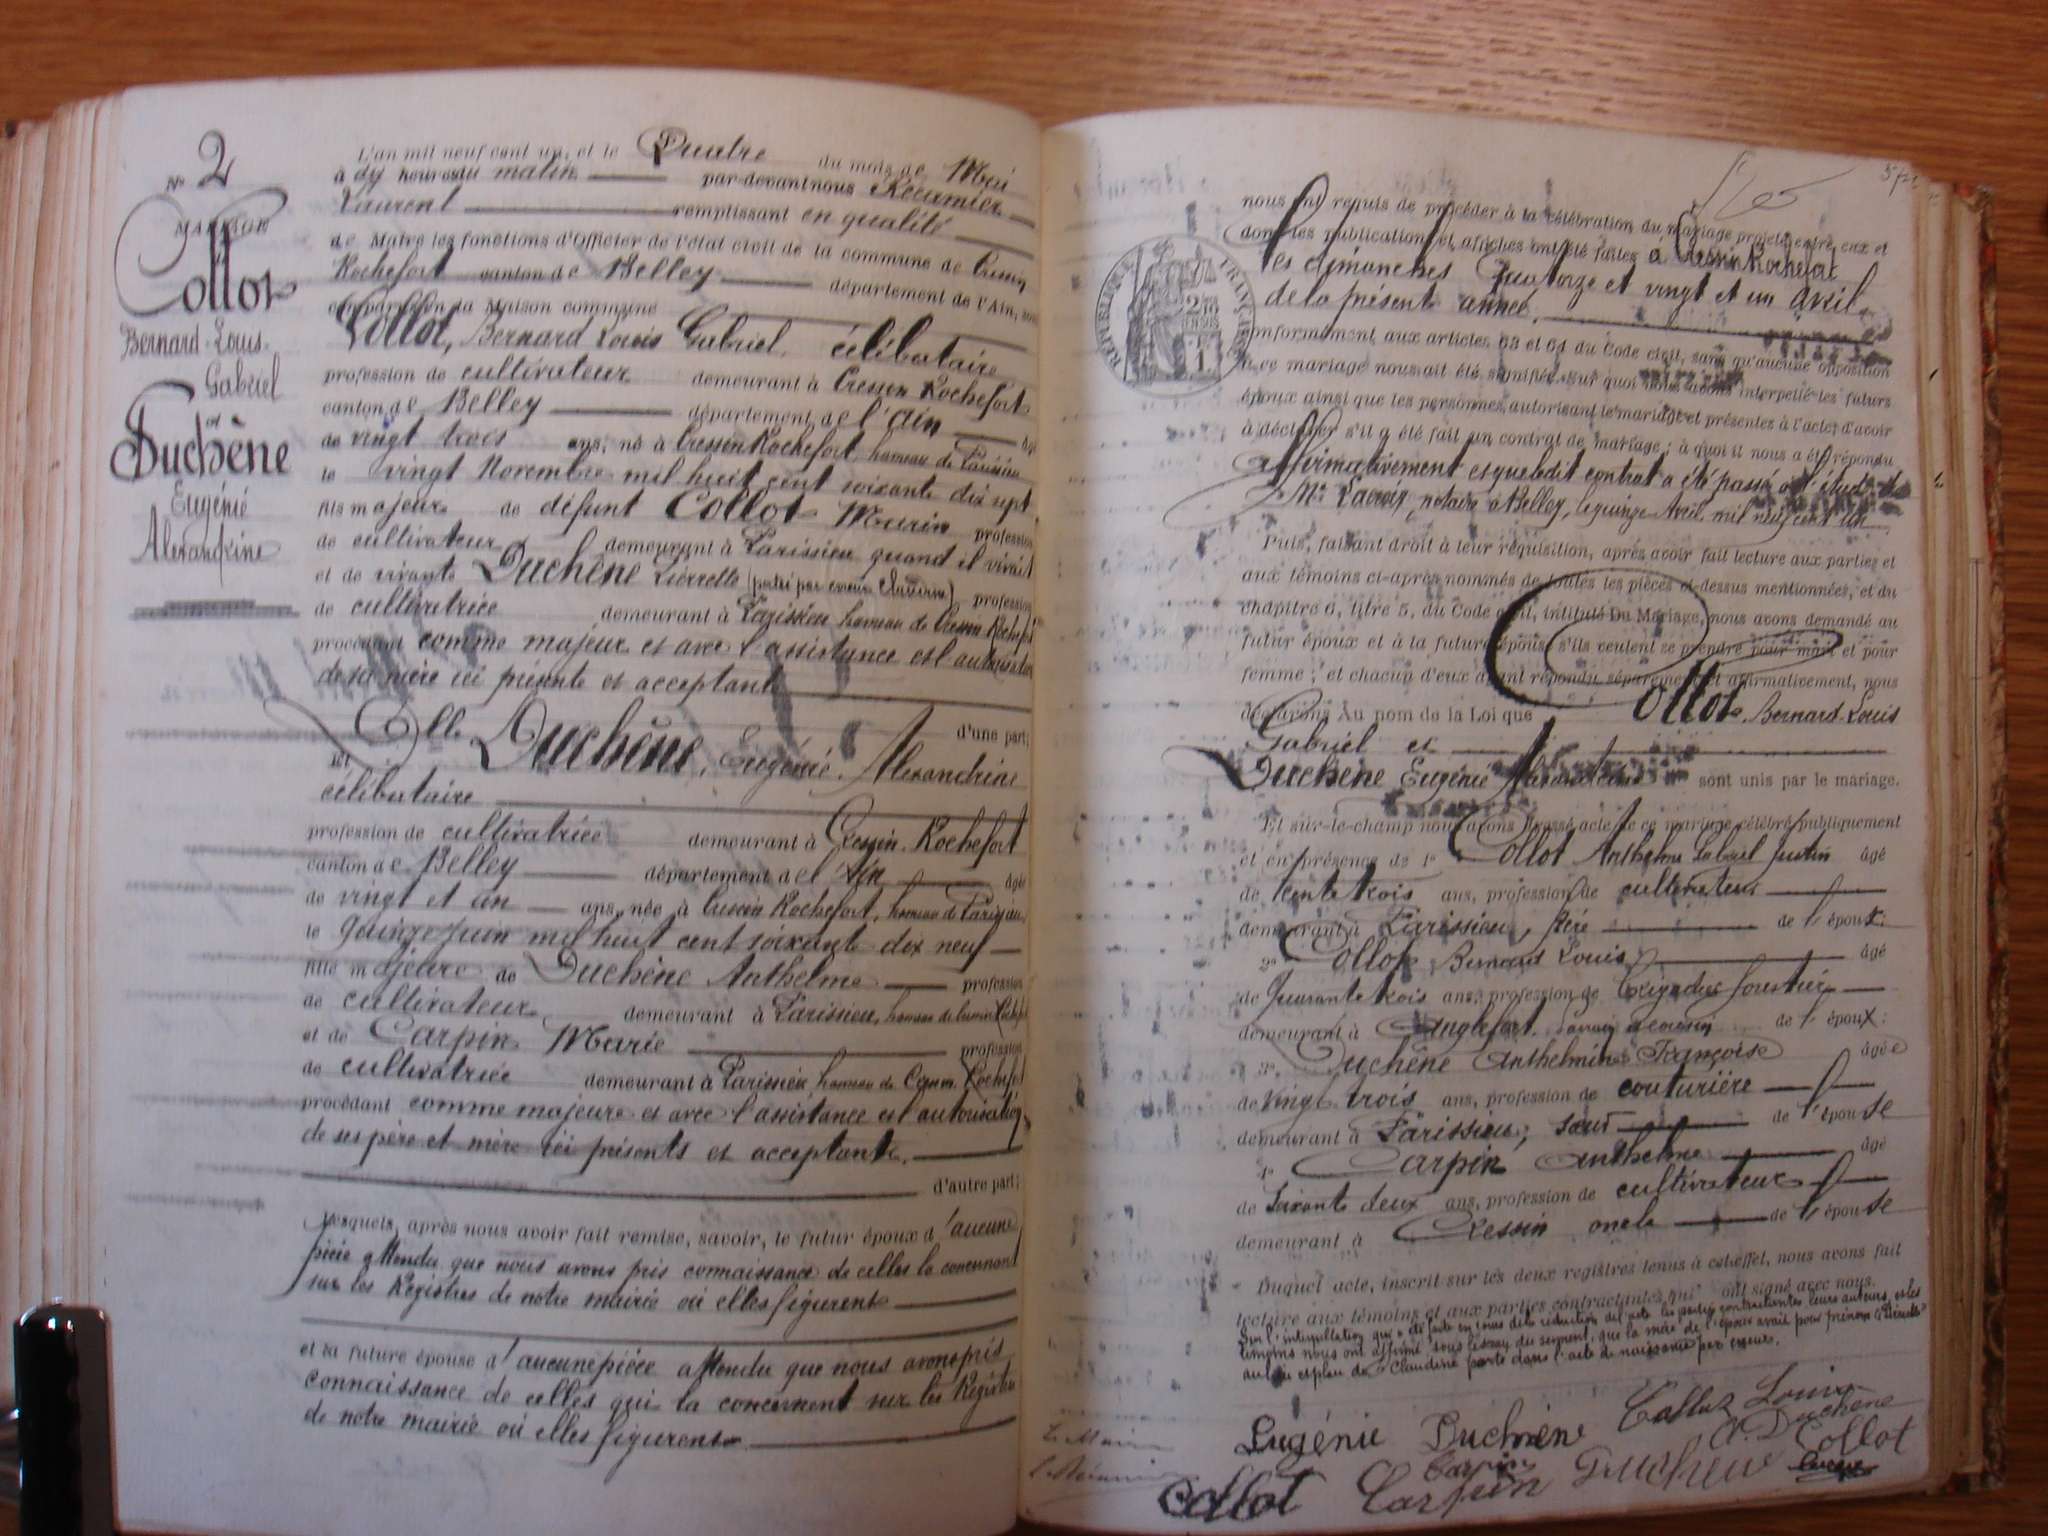 N° 2
MARIAGE
Collot
Bernard-Louis-
Gabriel
et
Duchêne
Eugénie
Alexandrine
L'an mil neuf cent un, et le Quatre du mois de Mai
à dix heures du matin par-devant nous Récamier
Laurent remplissant en qualité
de Maire les fonctions d'Officier de l'état civil de la commune de Cressin
Rochefort canton de Belley département de l'Ain, sont
comparus en la Maison commune
Collot, Bernard Louis Gabriel, célibataire
profession de cultivateur demeurant à Cressin Rochefort
canton de Belley département de l'Ain âgé
de vingt trois ans, né à Cressin Rochefort, hameau de Parissieu
le vingt Novembre mil huit cent soixante dix sept
fils majeur de défunt Collot Marin profession
de cultivateur demeurant à Parissieu quand il vivait
et de vivante Duchêne Pierrette (porté par erreur Claudine) profession
de cultivatrice demeurant à Parissieu hameau de Cressin Rochefort
procédant comme majeur et avec l'assistance et l'autorisation
de sa mère ici présente et acceptante
d'une part;
Et Elle Duchêne, Eugénie, Alexandrine
célibataire
profession de cultivatrice demeurant à Cressin-Rochefort
canton de Belley département de l'Ain âgée
de vingt et un ans, née à Cressin Rochefort, hameau de Parissieu,
le quinze juin mil huit cent soixante dix neuf
fille majeure de Duchêne Anthelme profession
de cultivateur demeurant à Parissieu, hameau de Cressin Rochefort
et de Carpin Marie profession
de cultivatrice demeurant à Parissieu hameau de Cressin Rochefort
procédant comme majeure et avec l'assistance et l'autorisation
de ses père et mère ici présents et acceptants.
d'autre part;
Lesquels, après nous avoir fait remise, savoir, le futur époux d'aucune
pièce attendu que nous avons pris connaissance de celles le concernant
sur les Registres de notre mairie où elles figurent
et la future épouse d'aucune pièce attendu que nous avons pris
connaissance de celles qui la concernent sur les Registres
de notre mairie où elles figurent.
nous ont requis de procéder à la célébration du mariage projeté entre eux et
dont les publications et affiches ont été faites à Cressin Rochefort
les dimanches Quatorze et vingt et un avril
de la présente année.
conformément aux articles 63 et 64 du Code civil, sans qu'aucune opposition
à ce mariage nous ait été signifiée. Sur quoi nous avons interpellé les futurs
époux ainsi que les personnes autorisant le mariage et présentes à l'acte, d'avoir
à déclarer s'il a été fait un contrat de mariage; à quoi il nous a été répondu
affirmativement et que ledit contrat a été passé en l'étude de
Me Lacroix, notaire à Belley, le quinze Avril mil neuf cent un
Puis, faisant droit à leur réquisition, après avoir fait lecture aux parties et
aux témoins ci-après nommés de toutes les pièces ci-dessus mentionnées, et du
chapitre 6, titre 5, du Code civil, intitulé Du Mariage, nous avons demandé au
futur époux et à la future épouse s'ils veulent se prendre pour mari et pour
femme; et chacun d'eux ayant répondu séparément et affirmativement, nous
déclarons Au nom de la Loi que Collot, Bernard-Louis
Gabriel et
Duchêne Eugénie Alexandrine sont unis par le mariage.
Et sur-le-champ nous avons dressé acte de ce mariage célébré publiquement
et en présence de 1° Collot Anthelme Gabriel Justin âgé
de trente trois ans, profession de cultivateur
demeurant à Parissieu, frère de l'époux;
2° Collot Bernard Louis âgé
de Quarante trois ans, profession de brigadier forestier
demeurant à Anglefort, cousin de l'époux:
3° Duchêne Anthelmine Françoise âgée
de vingt trois ans, profession de couturière
demeurant à Parissieu, sœur de l'épouse
4° Carpin Anthelme âgé
de soixante deux ans, profession de cultivateur
demeurant à Cressin oncle de l'épouse
Duquel acte, inscrit sur les deux registres tenus à cet effet, nous avons fait
lecture aux témoins et aux parties contractantes qui ont signé avec nous.
Sur l'interpellation qui a été faite en cours de la rédaction de l'acte les parties contractantes, leurs auteurs et les
témoins nous ont affirmé sous la foi du serment, que la mère de l'époux avait pour prénom "Pierrette"
au lieu et place de "Claudine" porté dans l'acte de naissance par erreur.
Eugénie Duchêne Collot Louis
A. Duchêne
Le Maire
L. Récamier
Carpin
Collot Carpin Duchene Collot
REPUBLIQUE FRANÇAISE